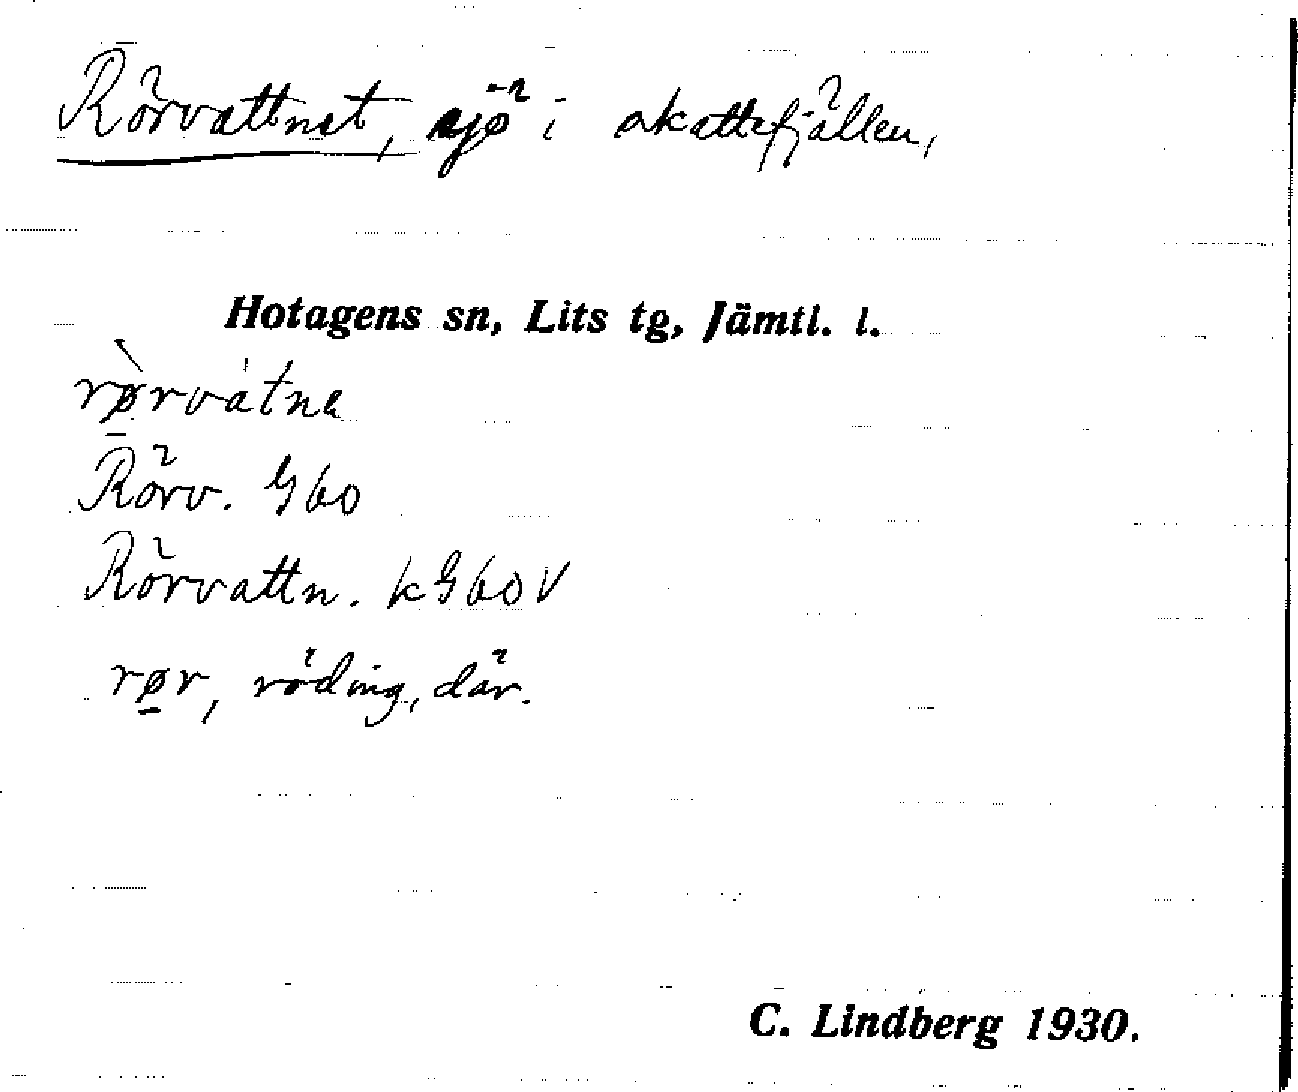 Rörvattnet, sjö i skattefjällen,
Hotagens sn, Lits tg, Jämtl. l.
rø̀rvátna
Rörv. G60
Rörvattn. kG60V
rø̱r, röding, där.
C. Lindberg 1930.